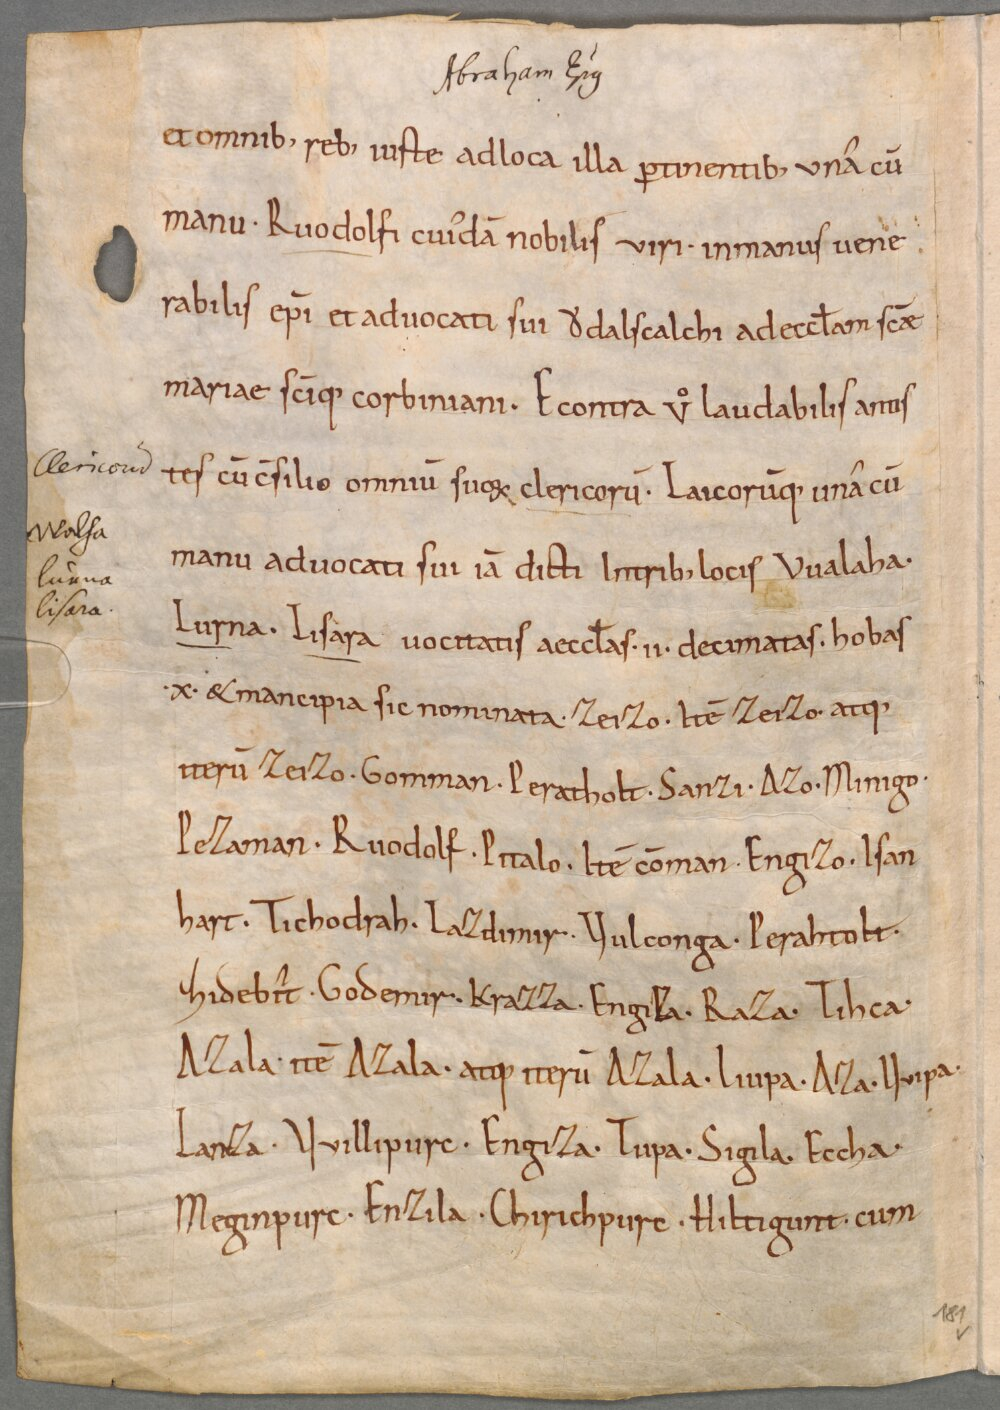 Abraham Ep̄s
et omnib; reb; iuste ad loca illa ꝑtinentib; una cū
manu · Ruodolfi cuiᵈdā nobilis viri · in manus uene
rabilis ep̄i et advocati sui Ȣdalscalchi ad eccl̄am scǣ
mariae sc̄iq; corbiniani · E contra vͦ laudabilis antis
tes cū c̄silio omniū suoꝝ clericorū · Laicorūq; una cū
Clericorū
manu advocati sui iā dicti In trib; locis Vualaha ·
Walha
Lurna · Lisara uocitatis aeccl̄as · ii · decimatas · hobas
lurna
lisara ·
· x · & mancipia sic nominata · Zeizo · Itē Zeizo · atq;
iterū Zeizo · Gomman · Peratholt · Sanzi · Azo · Minigo ·
Pezaman · Ruodolf · Pitalo · Itē cōman · Engizo · Isan
hart · Tichodrah · Lazdimir · Vulconga · Perahtolt ·
Hidebr̄t · Godemir · Krazza · Engiza · Raza · Tihca ·
Azala · itē Azala · atq; iterū Azala · Liupa · Aza · VVipa ·
Lanza · VVillipurc · Engiza · Tupa · Sigila · Eccha ·
Meginpurc · Enzila · Chirichpurc · Hiltigunt · cum
181
v